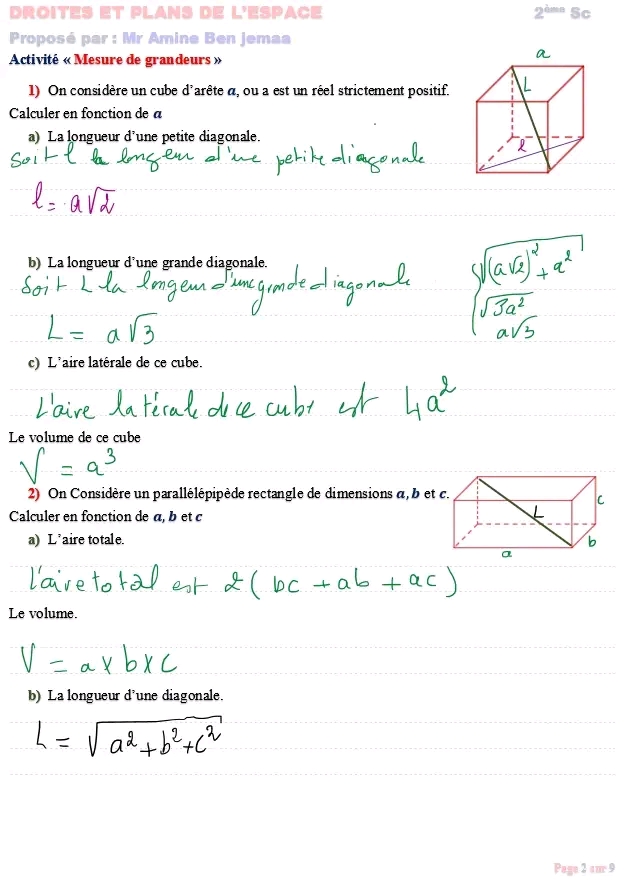 DROITES ET PLANS DE L'ESPACE
2ème Sc
Proposé par : Mr Amine Ben jemaa
Activité « Mesure de grandeurs »
1) On considère un cube d'arête a, ou a est un réel strictement positif.
Calculer en fonction de a
a) La longueur d'une petite diagonale.
a
L
l
Soit l la longeur d'une petite diagonale
l = a√2
b) La longueur d'une grande diagonale.
Soit L la longeur d'une grande diagonale
L = a√3
√(a√2)² + a²
√3a²
a√3
c) L'aire latérale de ce cube.
L'aire latérale de ce cube est 4a²
Le volume de ce cube
V = a³
2) On Considère un parallélépipède rectangle de dimensions a, b et c.
Calculer en fonction de a, b et c
a) L'aire totale.
L
c
b
a
l'aire total est 2(bc + ab + ac)
Le volume.
V = a x b x c
b) La longueur d'une diagonale.
L = √a² + b² + c²
Page 2 sur 9